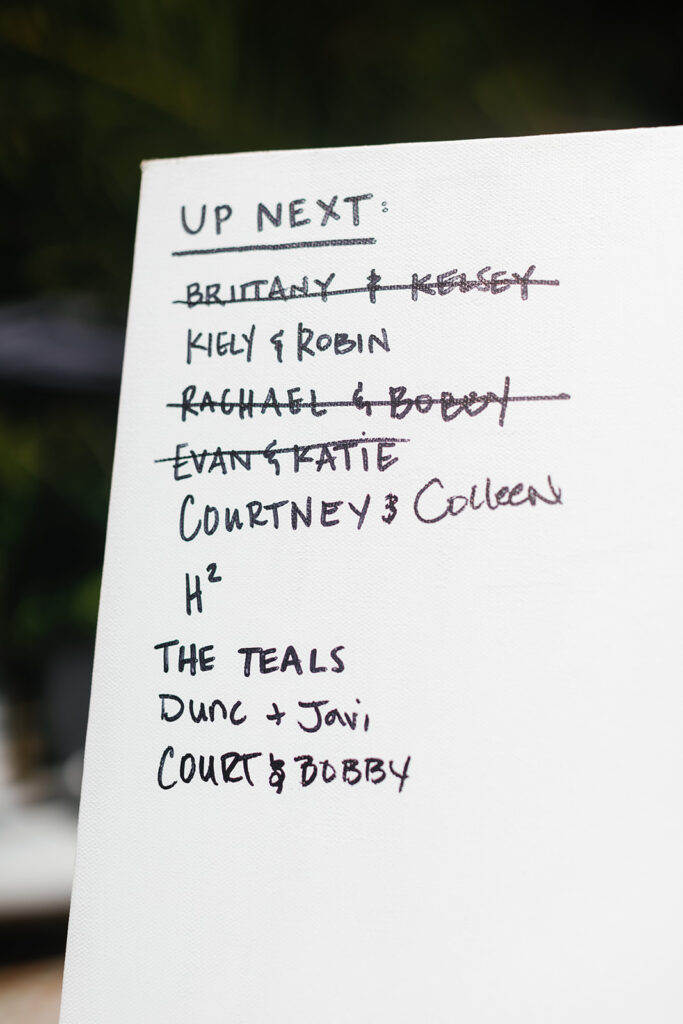 UP NEXT:
BRITTANY & KELSEY
KIELY & ROBIN
RACHAEL & BOBBY
EVAN & KATIE
COURTNEY & Colleen
H²
THE TEALS
Dunc + Javi
COURT & BOBBY